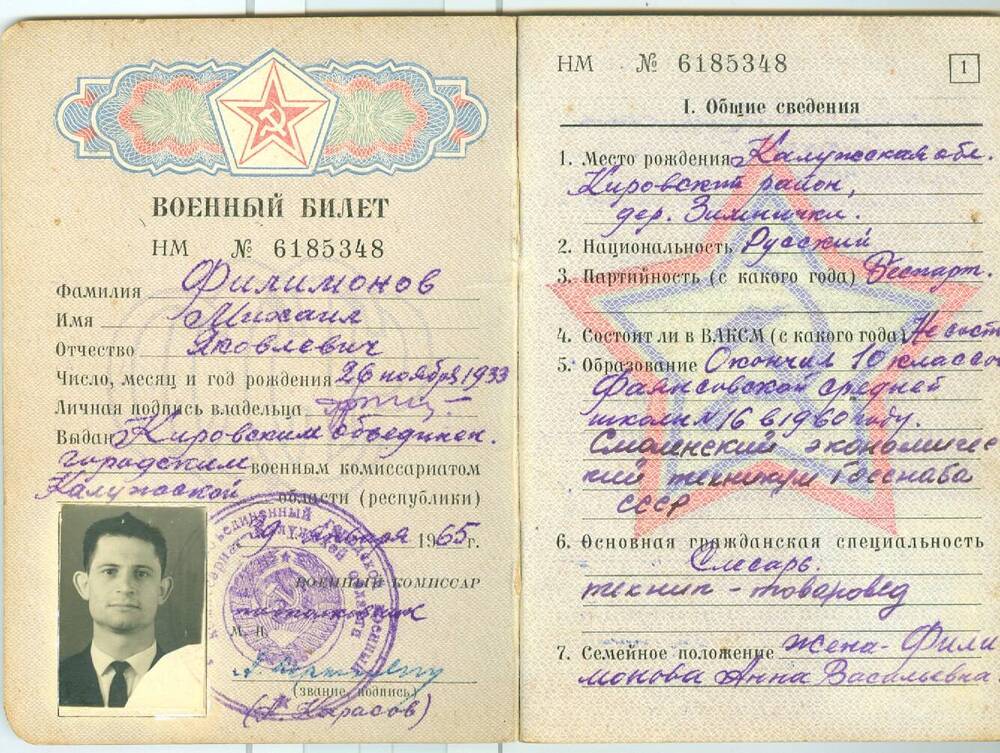 ВОЕННЫЙ БИЛЕТ
НМ № 6185348
Фамилия Филимонов
Имя Михаил
Отчество Яковлевич
Число, месяц и год рождения 26 ноября 1933
Личная подпись владельца
Выдан Кировским объединен.
городским военным комиссариатом
Калужской области (республики)
29 января 1965 г.
ВОЕННЫЙ КОМИССАР
подполковник
М. П.
(звание, подпись)
(А. Карасов)
НМ № 6185348
1
I. Общие сведения
1. Место рождения Калужская обл.
Кировский район,
дер. Зимнички.
2. Национальность Русский
3. Партийность (с какого года) Беспарт.
4. Состоит ли в ВЛКСМ (с какого года) Не сост
5. Образование Окончил 10 классо
Фаянсовской средней
школы №16 в 1960 году.
Смоленский экономичес
кий техникум Госснаба
СССР
6. Основная гражданская специальность
Слесарь.
техник - товаровед
7. Семейное положение жена - Фили
монова Анна Васильевна.